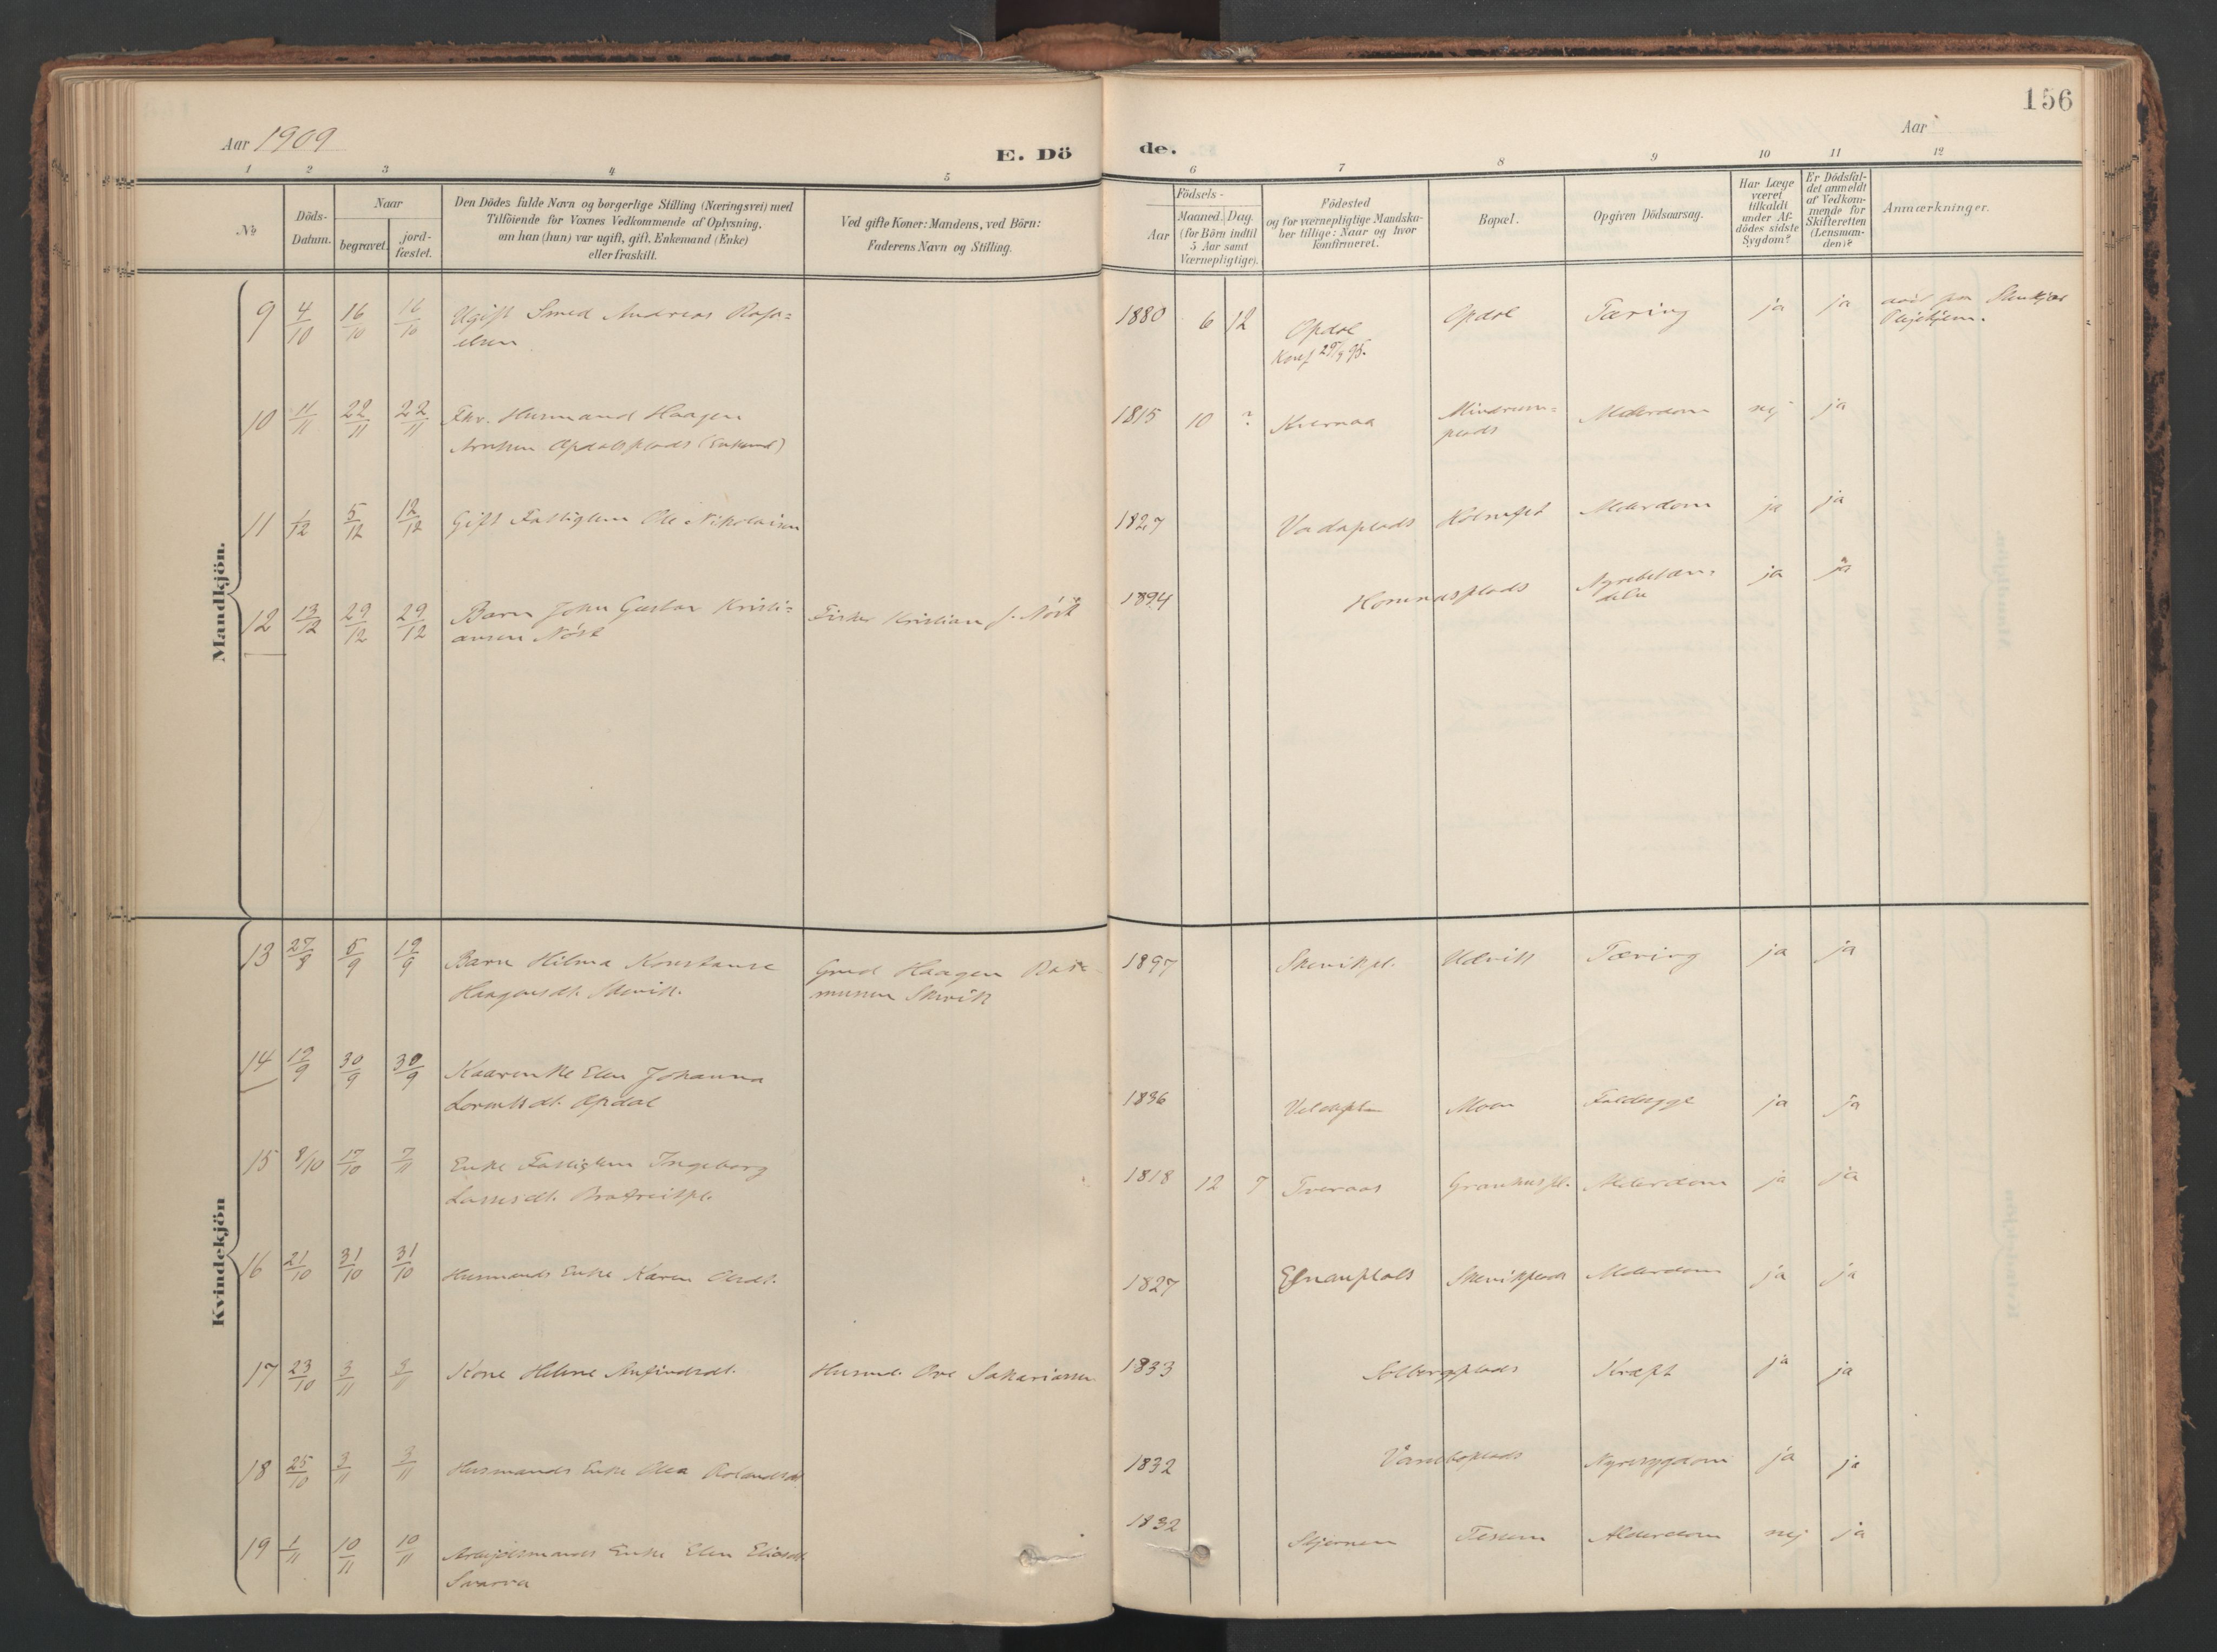 156
Aar 1909
E. Dö
de.
Aar
1 2 3 4 5 6 7 8 9 10 11 12
№
Döds-
Datum.
Naar
begravet.
jord-
fæstet.
Den Dödes fulde Navn og borgerlige Stilling (Næringsvei) med
Tilföiende for Voxnes Vedkommende af Oplysning,
om han (hun) var ugift, gift, Enkemand (Enke)
eller fraskilt.
Ved gifte Koner: Mandens, ved Börn:
Faderens Navn og Stilling.
Födsels-
Aar
Maaned. Dag.
(for Börn indtil
5 Aar samt
Værnepligtige).
Födested
og for værnepligtige Mandska-
ber tillige: Naar og hvor
konfirmeret.
Bopæl.
Opgiven Dödsaarsag.
Har Læge
været
tilkaldt
under Af-
dödes sidste
Sygdom?
Er Dödsfal-
det anmeldt
af Vedkom-
mende for
Skifteretten
(Lensman-
den)?
Anmærkninger.
Mandkjön.
9 4/10 16/10 16/10 Ugift Smed Andreas Rafa=
elsen
1880 6 12 Opdal
Konf 29/9 95.
Opdal Tæring ja ja
Plejehjem.
10 11/11 22/11 22/11 Fhv. Husmand Haagen
Opdalsplads (Enkemd)
1815 10 ? Kvernaa
plads
Alderdom nej ja
11 1/12 5/12 12/12 Gift Fattiglem Ole Nikolaisen
1827 Vadaplads Alderdom ja ja
12 13/12 29/12 29/12 Barn John Gustav Kristi=
ansen Nöst
Fisker Kristian J. Nöst
1894 ja ja
Kvindekjön
13 27/8 5/9 19/9 Barn Hilma Konstanse
Haagensdt. Skevik.
Grmd Haagen Ras-
mussen Skevik
1897 Skevikpl. Udvik Tæring ja ja
14 19/9 30/9 30/9 Kaarenke Elen Johanna
Lorentsdt. Opdal
1836 Moen ja ja
15 8/10 17/10 7/11 Enke Fattiglem Ingeborg
Larsdt.
1818 12 7 Tveraas Granhuspl. Alderdom ja ja
16 21/10 31/10 31/10 Husmands Enke Karen Olsdt.
1827 Skevikplads Alderdom ja ja
17 23/10 3/11 3/11 Kone Helene Anfindsdt.
Husmd. Ove Sakariassen
1833 Solbergplads Kræft ja ja
18 25/10 3/11 3/11 Husmands Enke Olea Rolandsdt.
1832 Nyresygdom ja ja
19 1/11 10/11 10/11 Arbejdsmands Enke Elen Eliasdt.
Svarva
1832 Stjernen Tessem Alderdom nej ja